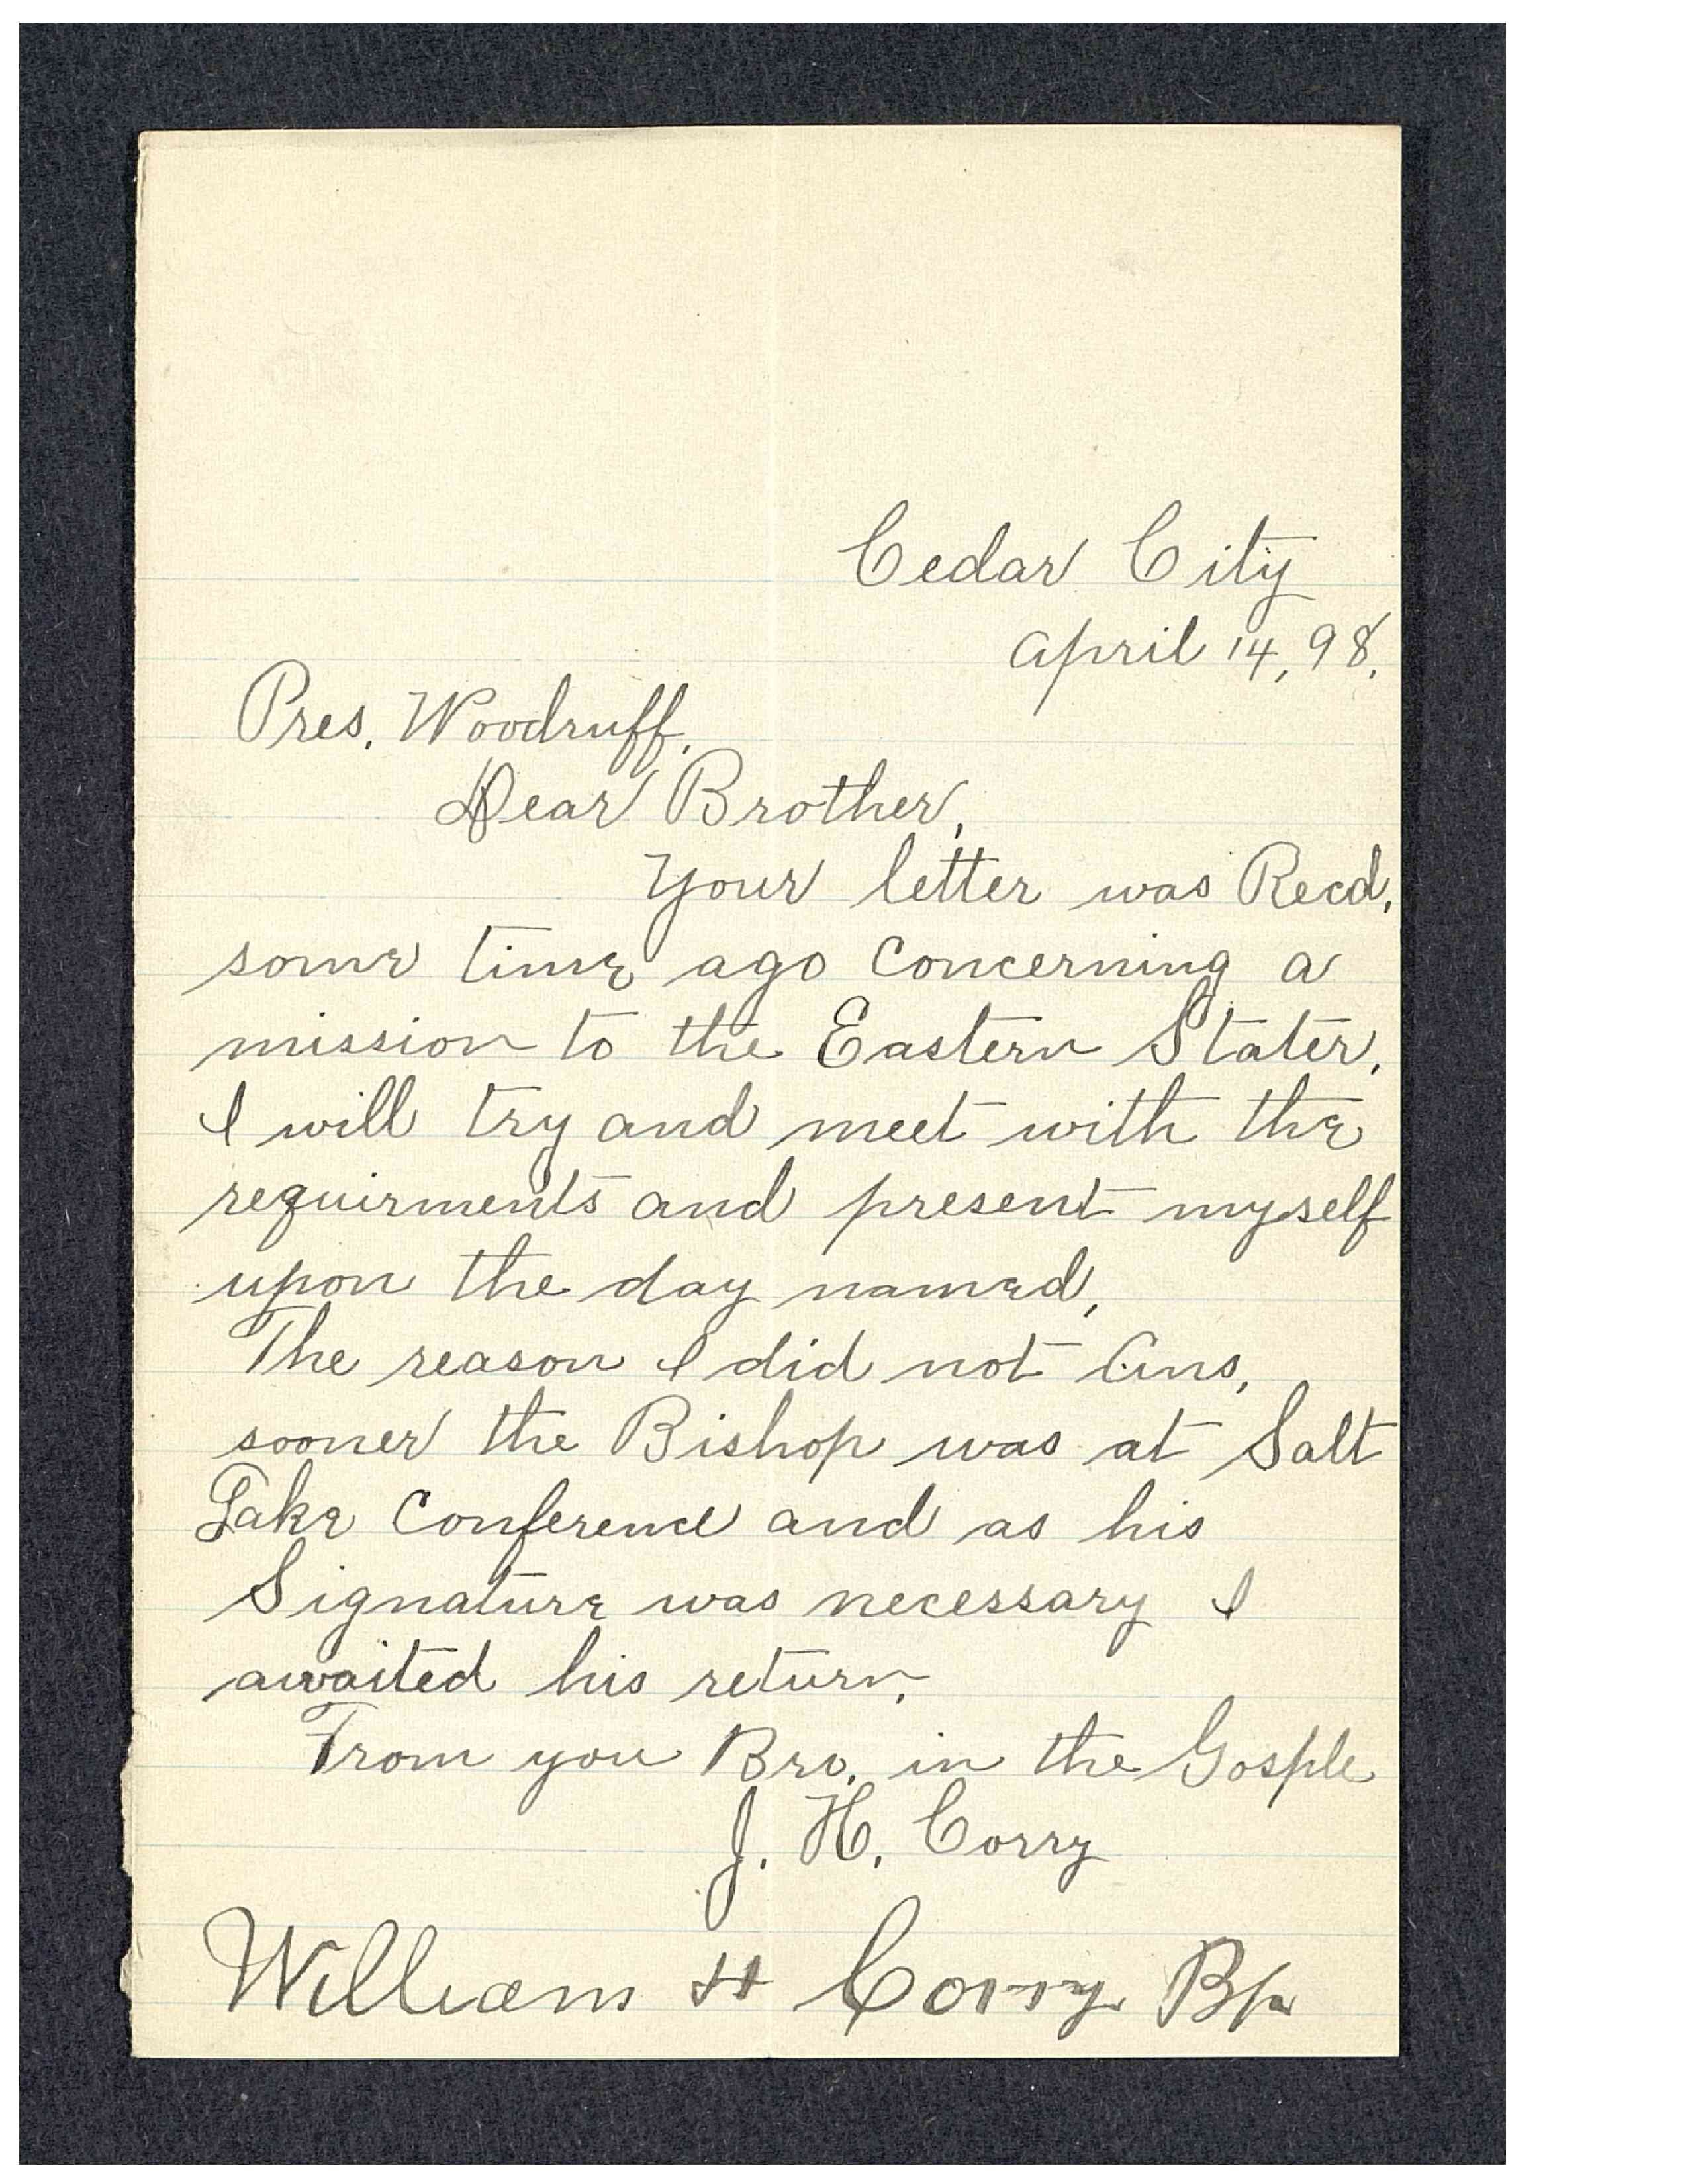 Cedar City
April 14, 98.
Pres. Woodruff.
Dear Brother,
Your letter was Recd.
some time ago concerning a
mission to the Eastern States.
I will try and meet with the
requirments and present myself
upon the day named,
The reason I did not Ans,
sooner the Bishop was at Salt
Lake Conference and as his
Signature was necessary I
awaited his return.
From you Bro. in the Gosple
J. H. Corry
William H Corry Bp